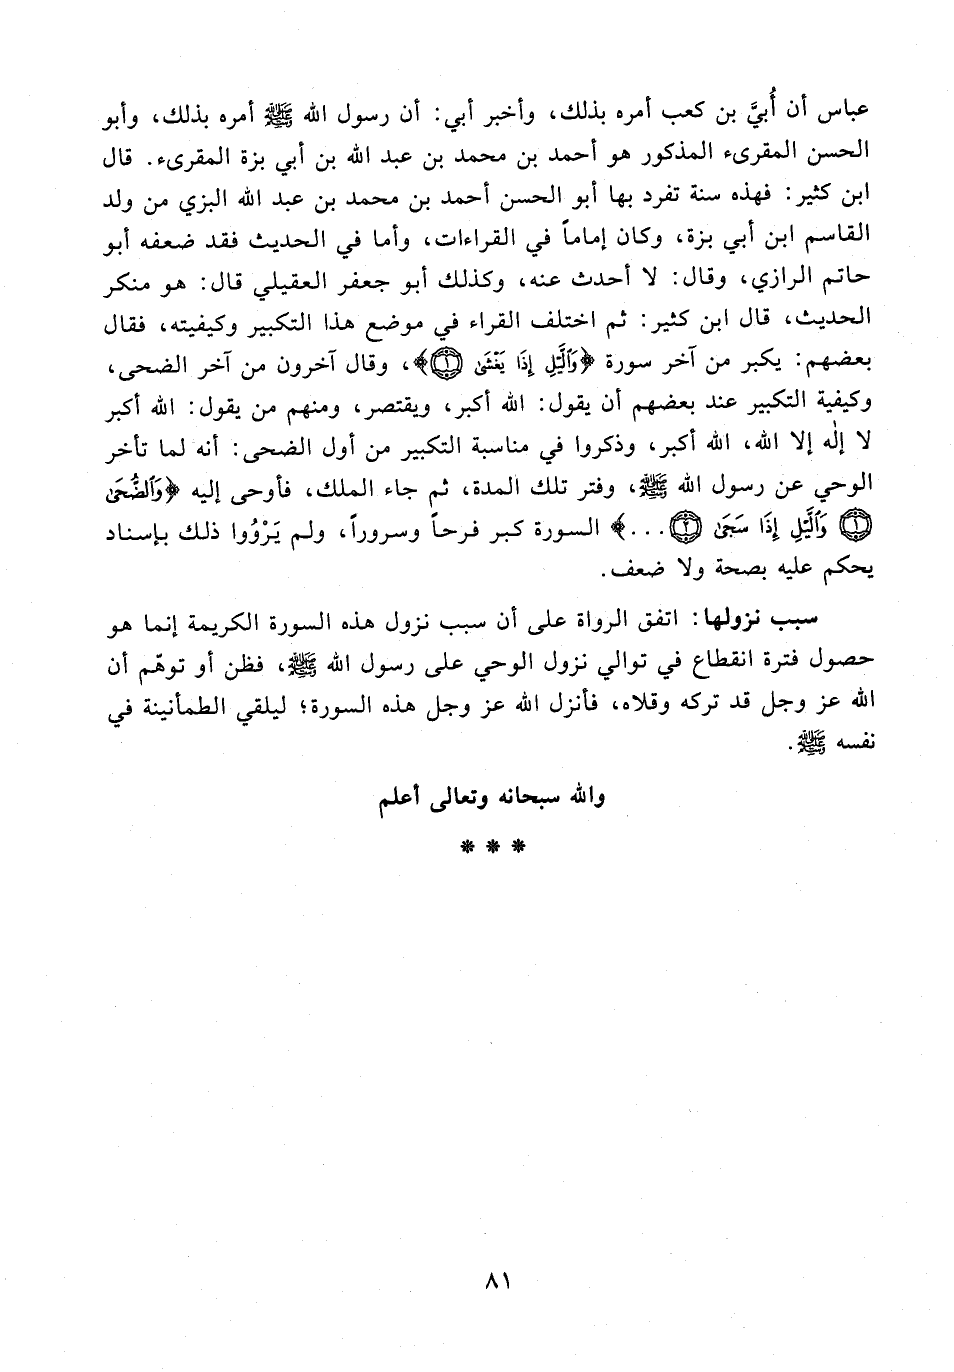 عباس أن أُبيَّ بن كعب أمره بذلك، وأخبر أبي: أن رسول الله ﷺ أمره بذلك، وأبو
الحسن المقرىء المذكور هو أحمد بن محمد بن عبد الله بن أبي بزة المقرىء. قال
ابن كثير: فهذه سنة تفرد بها أبو الحسن أحمد بن محمد بن عبد الله البزي من ولد
القاسم ابن أبي بزة، وكان إماماً في القراءات، وأما في الحديث فقد ضعفه أبو
حاتم الرازي، وقال: لا أحدث عنه، وكذلك أبو جعفر العقيلي قال: هو منكر
الحديث، قال ابن كثير: ثم اختلف القراء في موضع هذا التكبير وكيفيته، فقال
بعضهم: يكبر من آخر سورة ﴿وَٱلَّيْلِ إِذَا يَغْشَىٰ ۝١﴾، وقال آخرون من آخر الضحى،
وكيفية التكبير عند بعضهم أن يقول: الله أكبر، ويقتصر، ومنهم من يقول: الله أكبر
لا إلٰه إلا الله، الله أكبر، وذكروا في مناسبة التكبير من أول الضحى: أنه لما تأخر
الوحي عن رسول الله ﷺ، وفتر تلك المدة، ثم جاء الملك، فأوحى إليه ﴿وَٱلضُّحَىٰ
۝١ وَٱلَّيْلِ إِذَا سَجَىٰ ۝٢...﴾ السورة كبر فرحاً وسروراً، ولم يَرْوُوا ذلك بإسناد
يحكم عليه بصحة ولا ضعف.
سبب نزولها: اتفق الرواة على أن سبب نزول هذه السورة الكريمة إنما هو
حصول فترة انقطاع في توالي نزول الوحي على رسول الله ﷺ، فظن أو توهّم أن
الله عز وجل قد تركه وقلاه، فأنزل الله عز وجل هذه السورة؛ ليلقي الطمأنينة في
نفسه ﷺ.
والله سبحانه وتعالى أعلم
* * *
٨١